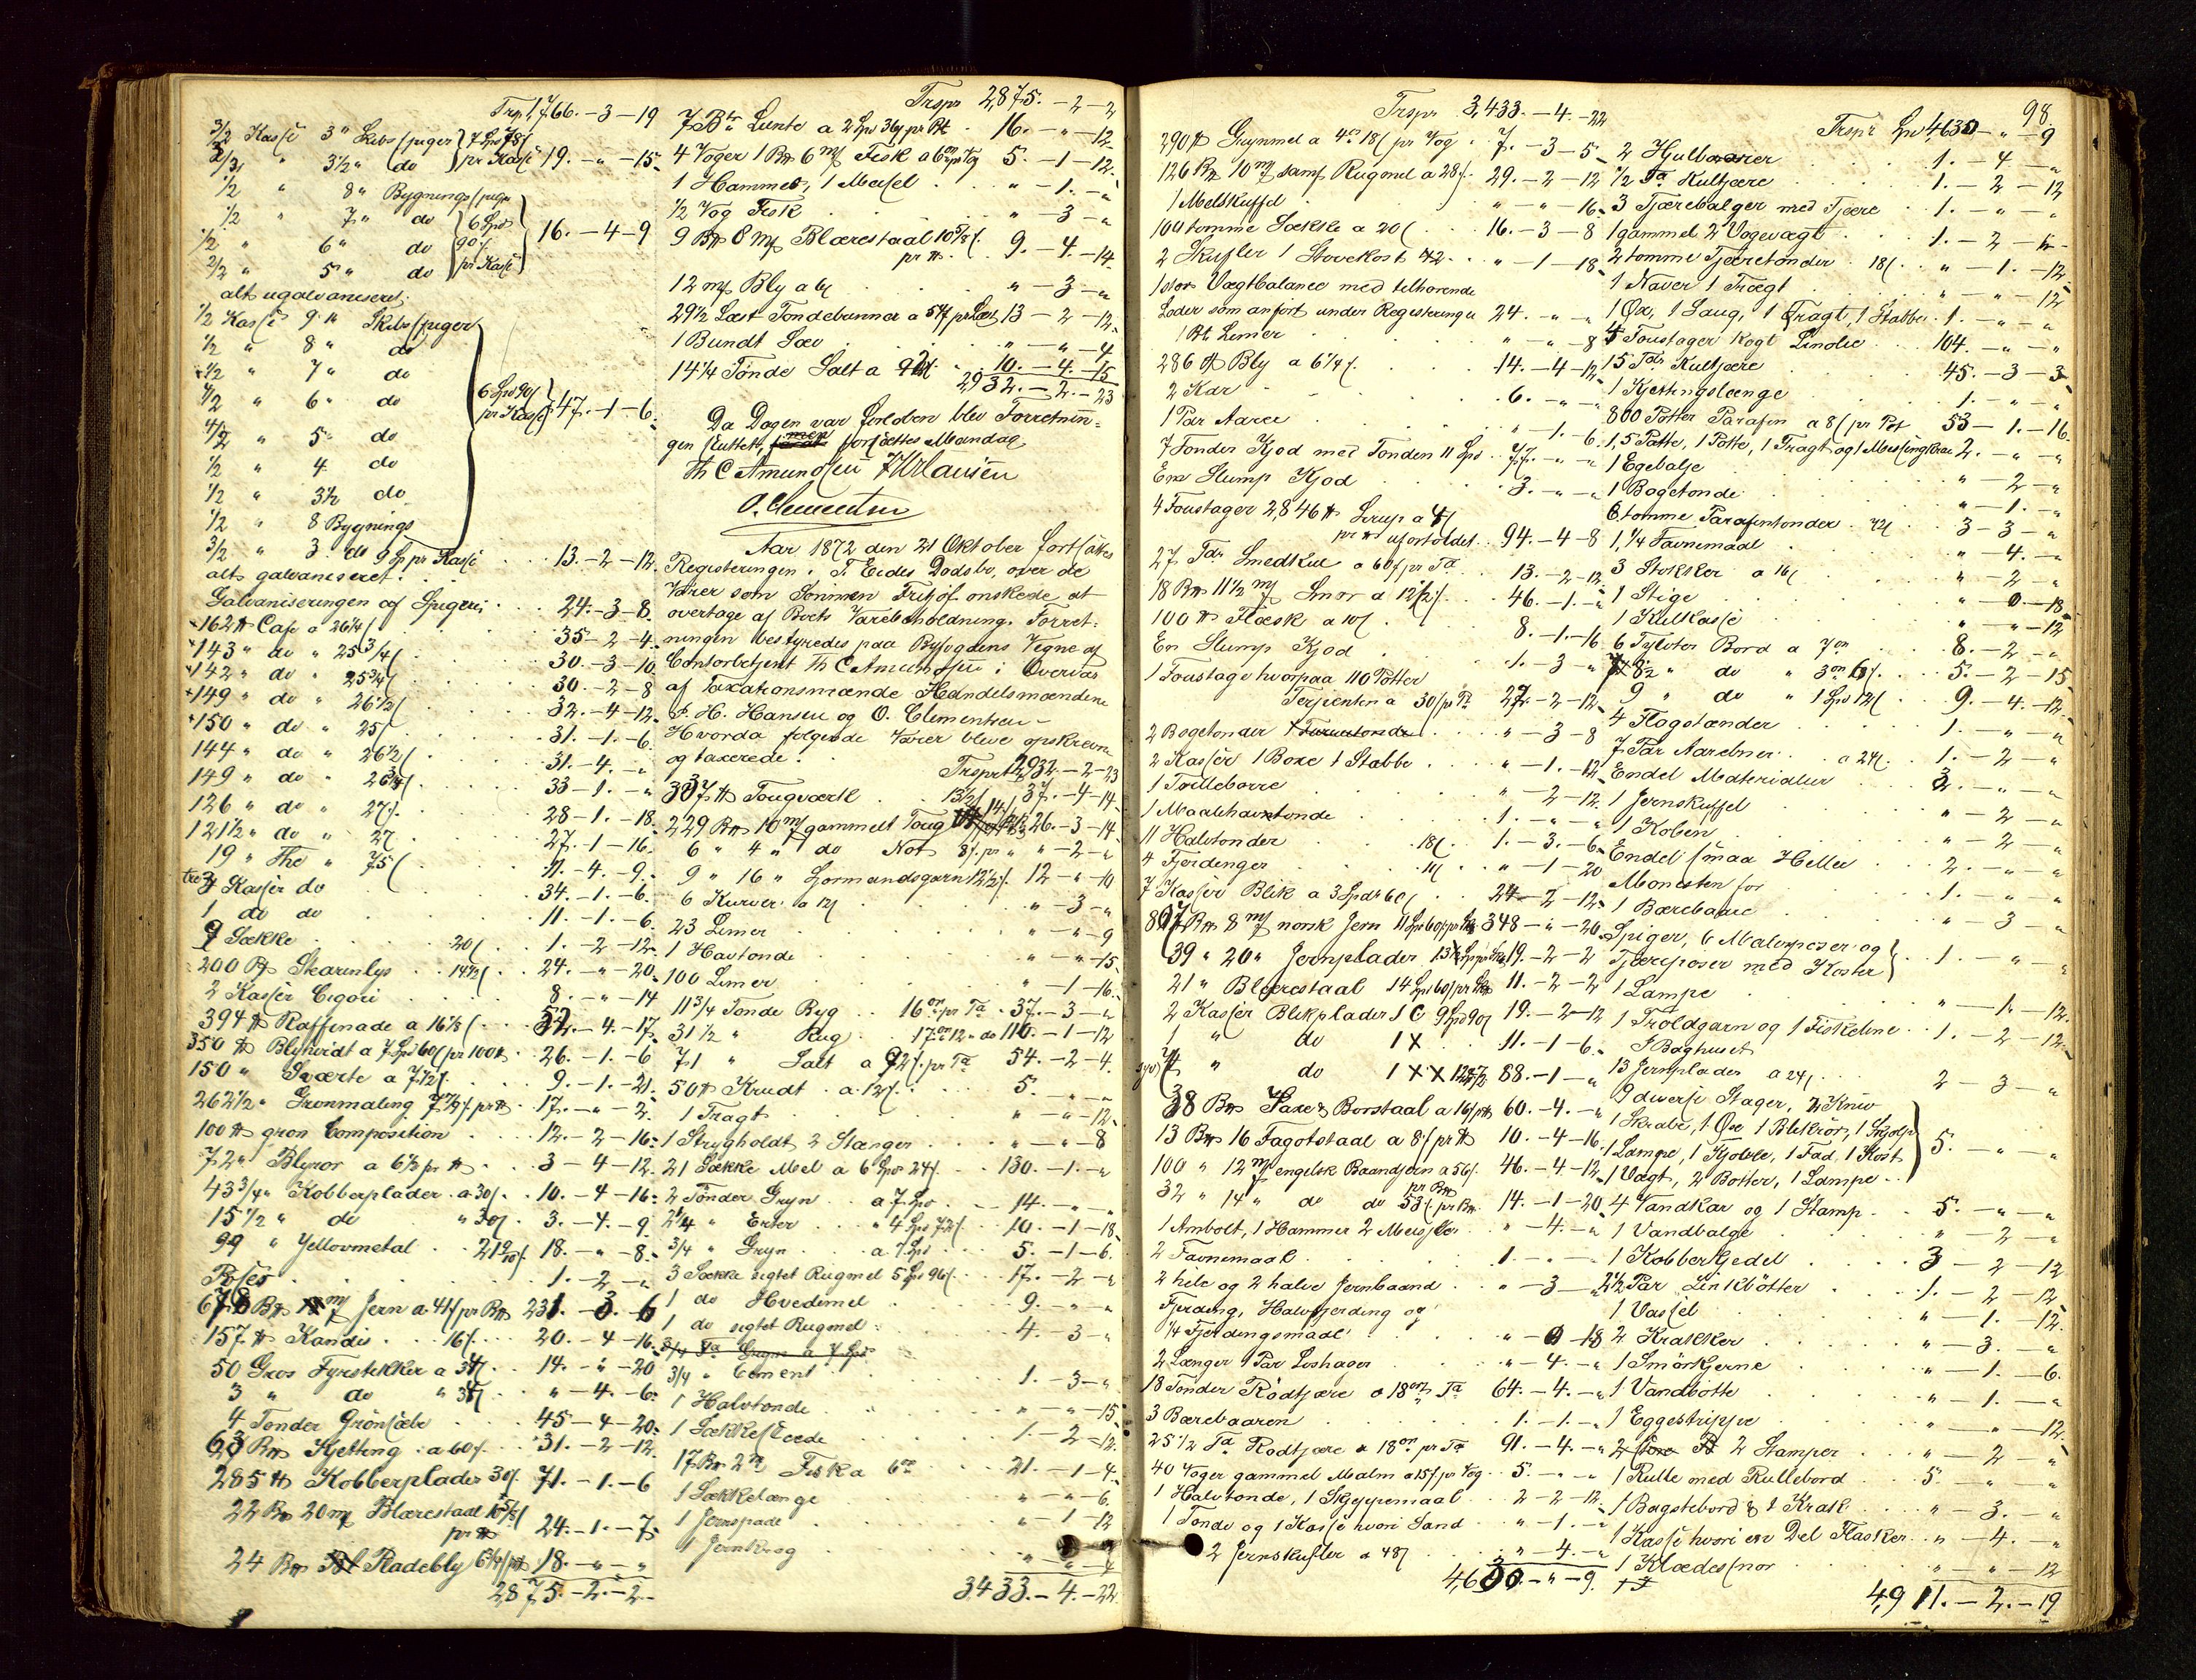 Trsp. 1,766.-3-19
3/2 Kasse 3" Skibsspiger 7 Spd 78 s
2/3 " 3 1/2" do pr Kasse 19.-"-15
1/2 " 8" Bygningsspiger
1/2 " 7" do 6 Spd
1/2 " 6" do 90 s 16.-4-9
2/2 " 5" do pr Kasse
alt ugalvaniseret.
1/2 Kasse 9" Skibsspiger
1/2 " 8" do
1/2 " 7" do
1/2 " 6" do 6 Spd 90 s
pr Kasse 47.-1-6
4/2 " 5" do
1/2 " 4 do
1/2 " 3 1/2 do
1/2 " 8 Bygnings
3/2 " 3 do 9 Sp pr Kasse 13.-2-12
alt galvaniseret.
Galvaniseringen af Spiger 24.-3-8
162 ℔ Caffe a 26 1/4 s 35-2-4
143 " do " 25 3/4 s 30.-3-10
142 " do " 25 3/4 s 30.-2-8
149 " do " 26 1/2 s 32.-4-12
150 " do " 25 s 31.-1-6
144 " do " 26 1/2 s 31.-4-"
149 " do " 26 3/4 s 33-1.-"
126 " do " 27 s 28-1.-18
121 1/2 " do " 27 27.-1-16
19 " The " 75 s 11.-4.-9
tre 3 Kasser do 34.-1.-6
1 do do 11.-1.-6
9 Sække 20 s 1.-2-12
200 Pk Stearinlys 14 1/2 s 24.-"-20
2 Kasser Cigori 8.-"-14
394 ℔ Raffinade a 16 1/8 s 52.-4.-17
350 ℔ Blyhvidt a 7 Spd 60 s pr 100 ℔ 26.-1.-6
150 " Sværte a 7 1/2 s 9.-1.-21
262 1/2 " Grønmaling 7 1/2 s pr ℔ 17.-"-2
100 ℔ grøn Composition 12.-2-16
72 " Blyror a 6 1/2 pr ℔ 3-4-12
43 3/4 " Kobberplader a 30 s 10.-4-16
15 1/2 " do " 30 s 3.-4.-9
99 " Yellovmetal 18.-"-8
Poser 1.-2-"
Jern a 41 s pr Bℳ
157 ℔ Kandis 16 s 20.-4-16
50 Gros Fyrstikker a 34 s 14.-"-20
3 " do " 34 s "-4.-6
4 Tønder Grønsæbe 45-4-20
63 Bℳ Kjetting a 60 s 31.-2-12
285 ℔ Kobberplader 30 s 71.-1.-6
22 Bℳ 20 m Blærestaal 10 5/8 s
pr ℔ 24.-1.-7
24 Bℳ Radebly 6 1/4 s pr ℔ 18.-"-"
2,875.-2.-2
Trspr 2,875.-2-2
7 Bt Lunte a 2 Spd 36 s pr Bt 16.-"-12
4 Voger 1 Bℳ 6 m Fisk 5.-1-12
1 Hammer, 1 Meisel "-1.-"
1/2 Vog Fisk "-3-"
9 Bℳ 8 m Blærestaal 10 5/8 s
pr ℔ 9.-4.-14
12 m Bly a 6 s "-3-"
29 1/2 Læst Tøndebunner a 54 s pr Læst 13-2-12
1 Bundt Sæv "-"-4
14 1/4 Tønde Salt a 92 s 10.-4.-15
2932.-2.-23
Da Dagen var forløben blev Forretnin-
gen sluttet, men fortsættes Mandag
Th C Amundsen
O. Clementsen
Aar 1872 den 21 Oktober fortsattes
Registeringen i T. Eides Dødsbo, over de
Varer som Sønnen Frithjof ønskede at
overtage af Boets Varebeholdning. Forret-
ningen bestyredes paa Byfogdens Vegne af
Contorbetjent Th C Amundsen i Overvær
af Taxationsmændene Handelsmændene
F. H. Hansen og O. Clementsen -
Hvorda følgende Varer bleve opskrevne
og taxerede.
Trsprt 2,932.-2-23
337 ℔ Tougværk 13 1/2 s 37.-4-14
229 Bℳ 10 m gammelt Toug 26.-3-14
6 " 4 " do Not 8 s pr " "-2-"
9 " 16 " Lormandsgarn 12 1/2 s 12-"-10
6 Kurver a 12 s "-3-"
23 Limer "-"-9
1 Havtønde "-"-15
100 Limer "-1-16
11 3/4 Tønde Byg 16 ort pr Ta 37.-3-"
31 1/2 " Rug 17 ort 12 " do 110.-1-12
71 " Salt a 92 s pr Ta 54.-2-4
50 ℔ Krudt a 12 s 5.-"-"
1 Tragt "-"-12
1 Strygholdt 2 Stænger "-"-8
21 Sække Mel a 6 Spd 24 s 130.-1.-"
2 Tønder Gryn a 7 Spd 14.-"-"
2 1/4 " Erter " 4 Spd 72 s 10.-1-18
3/4 " Gryn a 7 Spd 5.-1-6
3 Sække sigtet Rugmel 5 Spd 96 s 17.-2-"
1 do Hvedemel 9.-"-"
1 do sigtet Rugmel 4.-3-"
3/4 Ta Gryn a 7 Spd
3/4 " Cement 1.-3-"
1 Halvtønde "-"-15
1 Sækkeslæde 1.-2-12
17 Bℳ Fisk a 6 ort 21.-1-4
1 Sækkelænge "-"-6
1 Jernspade "-1-12
1 Jernkrog
3433.-4.-22
98.
Trspr 3,433.-4.-22
290 ℔ Grynmel a 4 ort 18 s pr Vog 7.-3-5
126 Bℳ 10 m samf Rugmel a 28 s 29.-2-12
1 Melskuffel "-"-16
100 tomme Sække a 20 s 16.-3-8
2 Skufler 1 Stovekost 42 "-1-18
1 stor Vægtbalance med tilhørende
Loder som anført under Registeringen 24.-"-"
1 Bt Limer "-"-8
286 ℔ Bly a 6 1/4 s 14.-4-12
2 Kar 6.-"-"
1 Par Aarer "-1.-6
7 Tønder Kjød med Tønden 11 Spd 77.-"-"
En Slump Kjød 3.-"-"
4 Foustager 2,846 ℔ Sirup a 4 s
pr ℔ ufortoldet 94.-4-8
27 Tdr Smedkul a 60 s pr Ta 13.-2-12
18 Bℳ 11 1/2 m Smør a 12 1/2 s 46.-1.-"
100 ℔ Flæsk a 10 s 8.-1.-16
En Slump Kjød 1.-3-"
1 Foustage hvorpaa 110 Potter
Terpentin a 30 s pr Pt 27.-2-12
2 Bøgetønder 1 Furutønde "-3-8
2 Kasser 1 Boxe 1 Stabbe "-1.-12
1 Trillebørre "-2-12
1 Maalehavrtønde 1.-"-"
11 Halvtønder 18 s 1.-3.-6
4 Fjerdinger 11 s "-1-20
7 Kasser Blik a 3 Spdr 60 s 24-2-12
867 Bℳ 8 m norsk Jern 348-"-20
39 " 20 " Jernplader 19.-2-2
21 " Blærestaal 14 Spd 60 s pr 11.-2-2
2 Kasser Blikplader 1 C 9 Spd 90 s 19.-2-12
1 " do 1 X 11.-1-6
syv 7 " do 1 XX 88.-1-"
38 Bℳ Saxe & Borstaal a 16 s pr ℔ 60.-4.-"
13 Bℳ 16 Fagotstaal a 8 s pr ℔ 10.-4-16
100 " 12 m engelsk Baandjern a 56 s 46.-4.-12
pr Bℳ
32 " 14 " do do 53 s pr Bℳ 14.-1-20
1 Ambolt, 1 Hammer 2 Meisler "-4.-"
2 Favnemaal 1.-"-"
2 hele og 2 halve Jernbaand "-3-"
Fjerding, Halvfjerding og
1/4 Fjerdingsmaal "-0-18
2 Længer 1 Par Loshager "-4.-"
18 Tønder Rødtjære a 18 ort Ta 64.-4.-"
3 Bærebaaren 1.-1.-"
25 1/2 Ta Rødtjære a 18 ort pr Ta 91.-4.-"
40 Voger gammel Malm a 15 s pr Vog 5.-"-"
1 Halvtønde, 1 Skjeppemaal 2-2-12
1 Tønde og 1 Kasse hvori Sand "-1.-"
2 Jernskufler a 48 s "-4.-"
4,630.-"-9
Trspr Spd 4,630-"-9
2 Hjulbører 1.-4-"
1/2 Ta Kultjære 1.-2-12
3 Tjærebalger med Tjære 1.-"-"
1 gammel 2 Vogevægt 1.-2-"
2 tomme Tjæretønder 18 s "-1.-12
1 Naver 1 Trægt "-"-12
1 Øxe, 1 Saug, 1 Tragt, 1 Stabbe 1.-"-"
4 Foustager kogt Linolie 104.-"-"
15 Tdr Kultjære 45.-3-3
1 Kjettingslænge 1.-"-"
800 Potter Parafin a 8 s pr Pot 53-1.-16
1, 5 Potte, 1 Potte, 1 Tragt og 1 Messingkran 2.-"-"
1 Egebalje "-2-"
1 Bøgetønde "-1.-"
6 tomme Parafintønder 72 s 3-3-"
1, 1/4 Favnemaal "-4.-"
3 Stokker a 16 s "-2-"
1 Stige "-0-18
1 Kulkasse "-"-12
6 Tylvter Bord a 7 ort 8.-2-"
8 1/2 " do " 3 ort 6 s 5.-2-15
9 " do " 1 Spd 12 s 9.-4.-12
4 Flagstænder 1.-"-"
7 Par Aareemner a 24 s 1.-2-"
Endel Materialier 3.-"-"
1 Jernskuffel "-2-"
1 Koben "-2-"
Endel smaa Heller 2.-"-"
Monesten for 1.-"-"
1 Bærebaare "-3-"
Spiger, 6 Malerposer og
Tjæreposer med Koster 1.-"-"
1 Lampe "-1.-12
1 Troldgarn og 1 Fiskeline 1.-2-12
I Baghuset
13 Jernplader a 24 s 2-3-"
9 diverse Stager, 2 Kniv
1 Skrabe, 1 Øxe 1 Blikrør, 1 Skjolp
1 Lampe, 1 Kjelde, 1 Fad, 1 Kost 5.-"-"
1 Vægt, 2 Bøtter, 1 Lampe
4 Vandkar og 1 Stamp 5.-"-"
1 Vandbalge "-2-"
1 Kobbergedel 3-2-12
2 1/2 Par Linkbøtter 1.-2-12
1 Vassel "-1.-12
2 Krakker "-3.-"
1 Smørkjerne "-1.-6
1 Vandbøtte "-1.-"
1 Eggestrippe "-"-12
2 Stamper "-2-"
1 Rulle med Rullebord 5.-"-"
1 Bagstebord & 1 Krak "-3.-"
1 Kasse hvori en Del Flasker "-4.-"
1 Klædessnor "-"-12
4,911.-2.-19